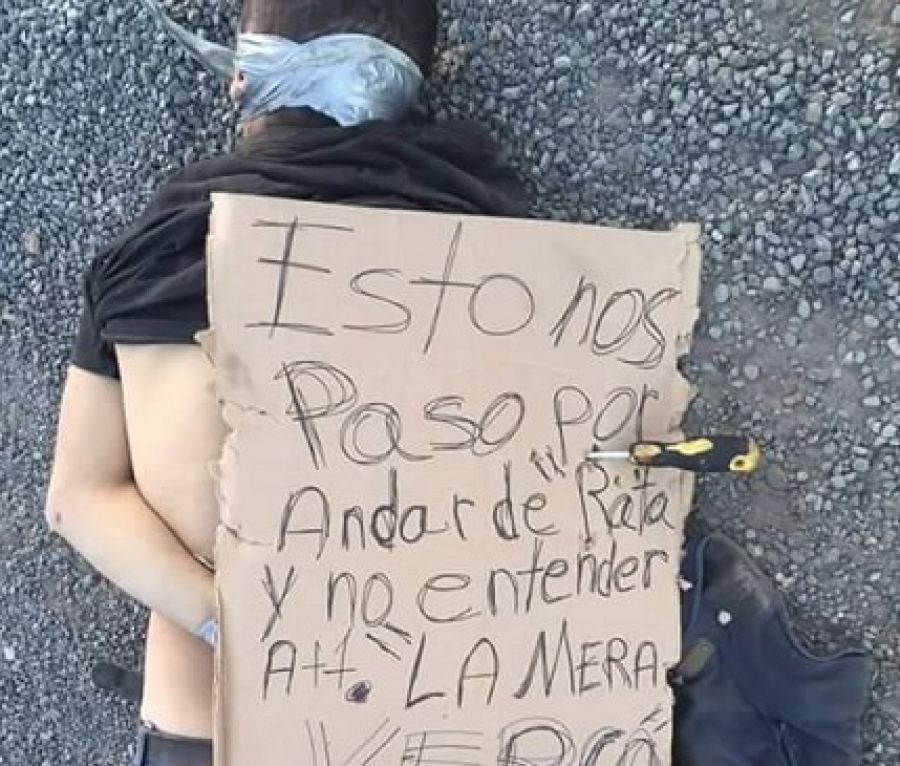 Esto nos
Paso por
Andar de "Rata
y no entender
Att. "LA MERA